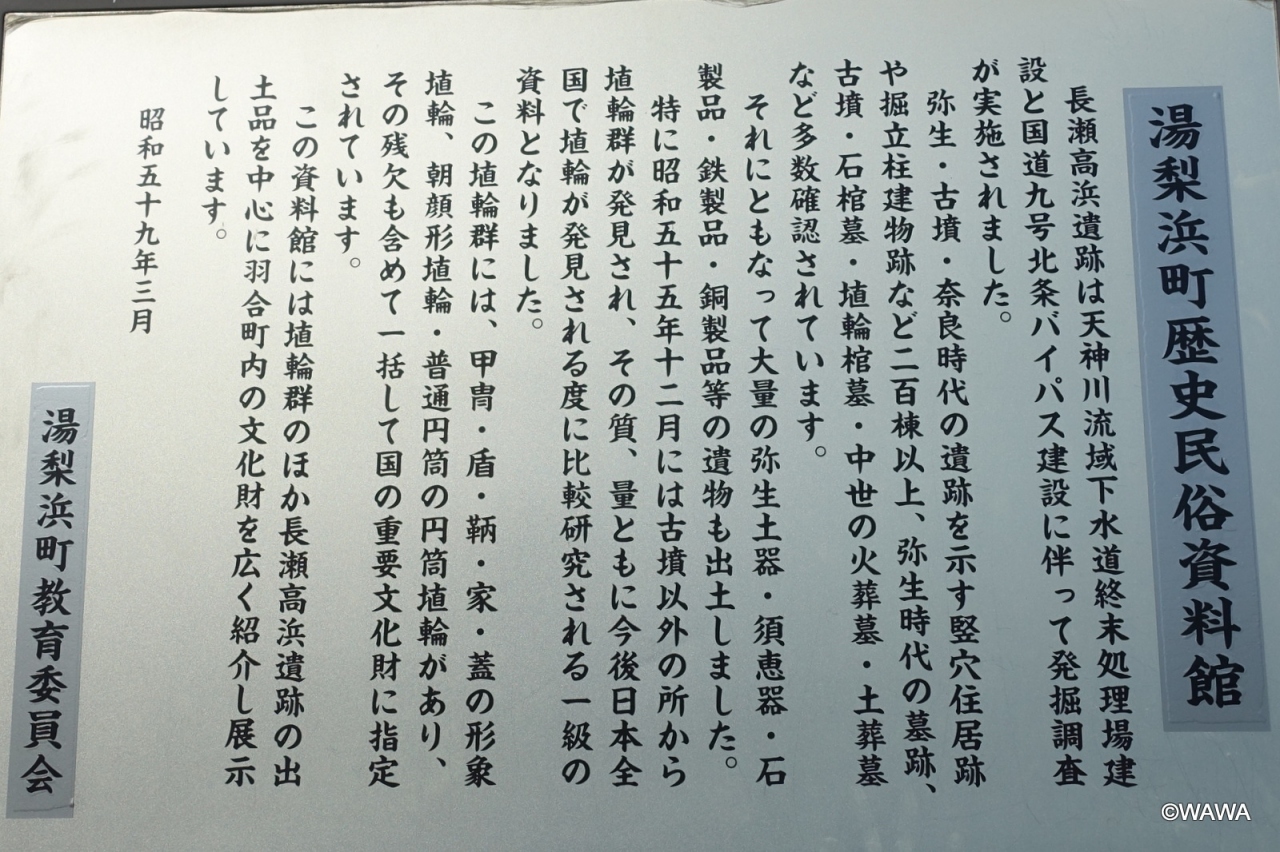 湯梨浜町歴史民俗資料館
長瀬高浜遺跡は天神川流域下水道終末処理場建
設と国道九号北条バイパス建設に伴って発掘調査
が実施されました。
弥生・古墳・奈良時代の遺跡を示す竪穴住居跡
や掘立柱建物跡など二百棟以上、弥生時代の墓跡、
古墳・石棺墓・埴輪棺墓・中世の火葬墓・土葬墓
など多数確認されています。
それにともなって大量の弥生土器・須恵器・石
製品・鉄製品・銅製品等の遺物も出土しました。
特に昭和五十五年十二月には古墳以外の所から
埴輪群が発見され、その質、量ともに今後日本全
国で埴輪が発見される度に比較研究される一級の
資料となりました。
この埴輪群には、甲冑・盾・鞆・家・蓋の形象
埴輪、朝顔形埴輪・普通円筒の円筒埴輪があり、
その残欠も含めて一括して国の重要文化財に指定
されています。
この資料館には埴輪群のほか長瀬高浜遺跡の出
土品を中心に羽合町内の文化財を広く紹介し展示
しています。
昭和五十九年三月
湯梨浜町教育委員会
©WAWA